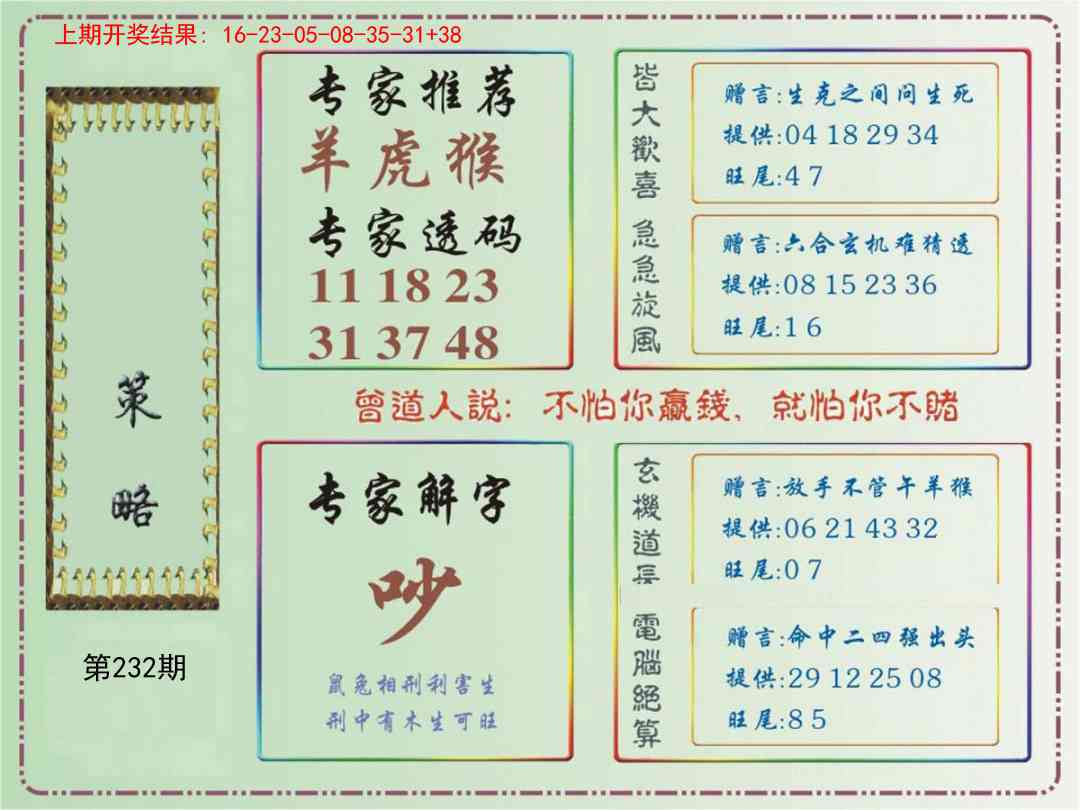 上期开奖结果: 16-23-05-08-35-31+38
策
略
第232期
专家推荐
羊虎猴
专家透码
11 18 23
31 37 48
皆大歡喜
赠言:生克之间问生死
提供:04 18 29 34
旺尾:4 7
急急旋風
赠言:六合玄机难猜透
提供:08 15 23 36
旺尾:1 6
曾道人説: 不怕你贏錢, 就怕你不賭
专家解字
吵
鼠兔相刑利害生
刑中有木生可旺
玄機道長
赠言:放手不管午羊猴
提供:06 21 43 32
旺尾:0 7
電腦絕算
赠言:命中二四强出头
提供:29 12 25 08
旺尾:8 5